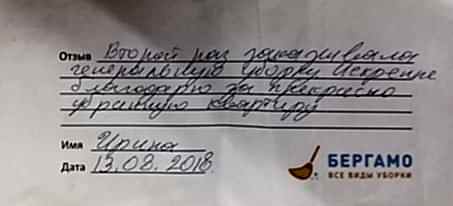 Отзыв Второй раз заказывала
генеральную уборку. Искренне
благодарю за прекрасно
убранную квартиру
Имя Ирина
Дата 13.08.2018.
БЕРГАМО
ВСЕ ВИДЫ УБОРКИ